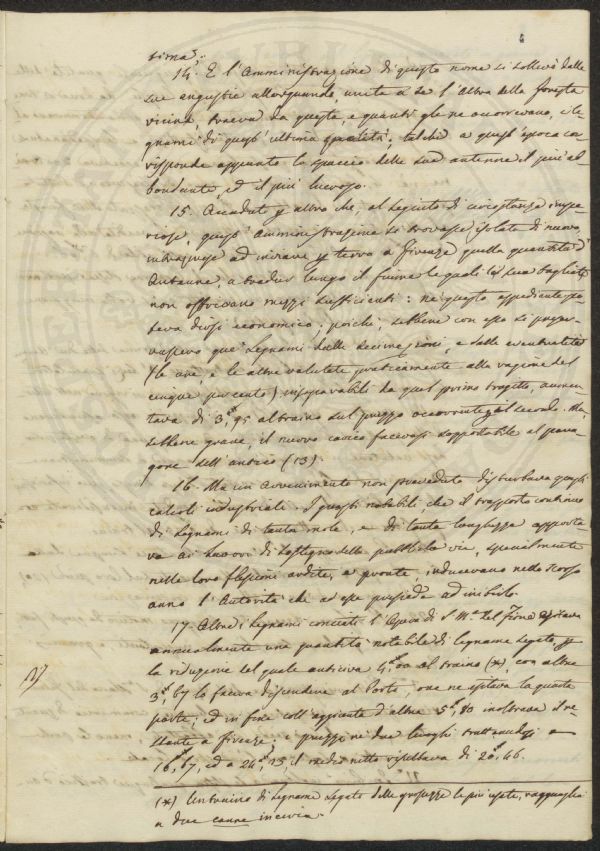 sima.
14. E l'Amministrazione di questo nome si sollevò dalle
sue angustie allorquando, unita a se l'altra della foresta
vicina, traeva da questa, e quanti gle ne occorrevano, i le-
gnami di quest'ultima qualità; talchè a quest'epoca cor-
risponde appunto lo spaccio delle sue antenne il più ab-
bondante, ed il più lucroso.
15. Accaduto per altro che, al seguito di circostanze impe-
riose, quest'Amministrazione si trovasse isolata di nuovo,
intraprese ad inviare per terra a Firenze quella quantità d'
Antenne, a tradur lungo il fiume le quali i suoi
non offrivano mezzi sufficienti: nè questo espediente po-
teva dirsi economico; poichè, sebbene con esso si preser-
vassero que' Legnami dalle decimazioni, e dalle eventualità
(le une, e le altre valutate praticamente alla ragione del
cinque per cento) inseparabili da quel primo tragitto, aumen-
tava di 3, 95 al traino sul prezzo occorrente il secondo. Ma
sebbene grave, il nuovo carico facevasi sopportabile al para-
gone dell'antico (13)
16. Ma un avvenimento non preveduto disturbava questi
calcoli industriali. I guasti notabili che il trasporto continuo
di Legnami di tanta mole, e di tanta lunghezza apporta-
va ai lavori di sostegno delle pubbliche vie, specialmente
nelle loro flessioni ardite, e pronte, inducevano nello scorso
anno l'Autorità che ad esse presiede ad inibirlo.
17. Altresi Legnami conciati l'Opera di S. Ma. del Fiore
annualmente una quantità notabile di legname segato, per
la riduzione del quale anticiva 4, 00 al traino (*), con altre
3, 67 lo faceva discendere al Porto, ove ne esitava la quarta
parte, ed in fine coll'aggiunta d'altre 5, 80 inoltrava il re-
stante a Firenze; i prezzi ne' due luoghi trattandosi a
16, 67, ed a 24, 13, il medio netto risultava di 20, 46.
(*) Un traino di Legname segato delle grossezze le più usate, ragguaglia
a due canne incirca.